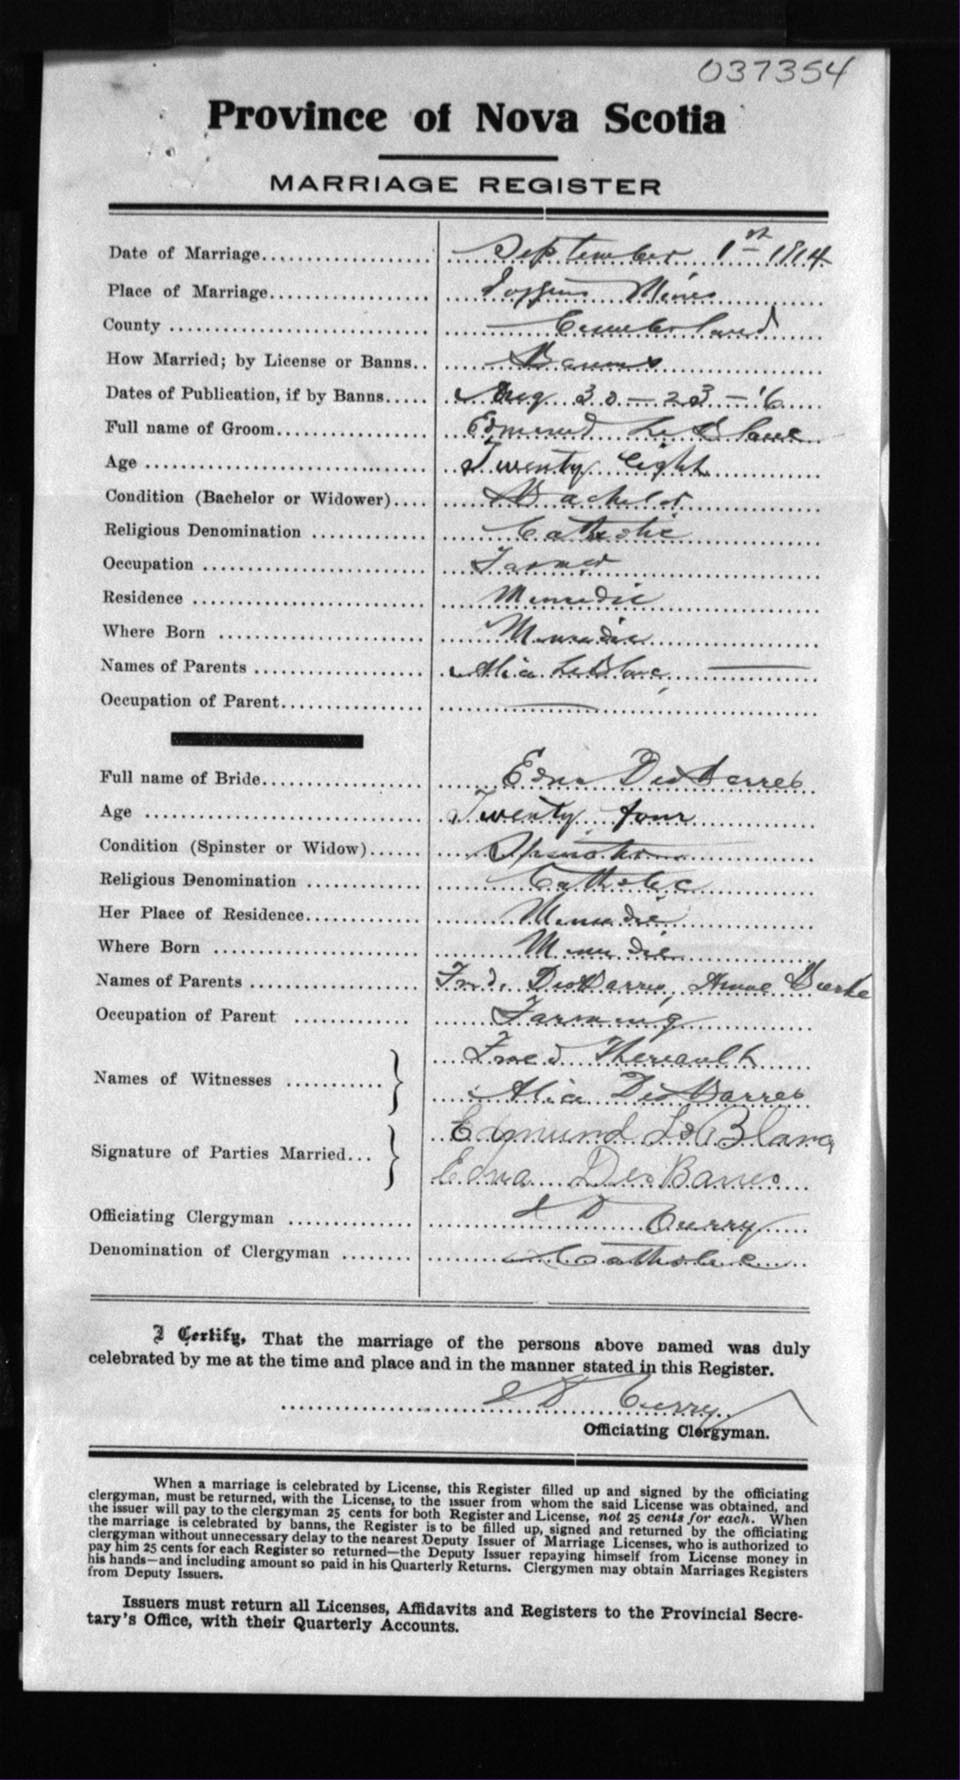 037354
Province of Nova Scotia
MARRIAGE REGISTER
Date of Marriage September 1st 1914
Place of Marriage Joggins Mines
County Cumberland
How Married; by License or Banns Banns
Dates of Publication, if by Banns Aug 30 - 23 - 16
Full name of Groom Edmund Le Blanc
Age Twenty Eight
Condition (Bachelor or Widower) Bachelor
Religious Denomination Catholic
Occupation Farmer
Residence Minudie
Where Born Minudie
Names of Parents LeBlanc
Occupation of Parent
Full name of Bride Edna DesBarres
Age Twenty four
Condition (Spinster or Widow) Spinster
Religious Denomination Catholic
Her Place of Residence Minudie
Where Born Minudie
Names of Parents Fred. DesBarres, Annie Burke
Occupation of Parent Farming
Names of Witnesses Fred Theriault
Alice DesBarres
Signature of Parties Married Edmund LeBlanc
Edna DesBarres
Officiating Clergyman D Curry
Denomination of Clergyman Catholic
I Certify, That the marriage of the persons above named was duly
celebrated by me at the time and place and in the manner stated in this Register.
D Curry
Officiating Clergyman.
When a marriage is celebrated by License, this Register filled up and signed by the officiating
clergyman, must be returned, with the License, to the issuer from whom the said License was obtained, and
the issuer will pay to the clergyman 25 cents for both Register and License, not 25 cents for each. When
the marriage is celebrated by banns, the Register is to be filled up, signed and returned by the officiating
clergyman without unnecessary delay to the nearest Deputy Issuer of Marriage Licenses, who is authorized to
pay him 25 cents for each Register so returned—the Deputy Issuer repaying himself from License money in
his hands—and including amount so paid in his Quarterly Returns. Clergymen may obtain Marriages Registers
from Deputy Issuers.
Issuers must return all Licenses, Affidavits and Registers to the Provincial Secre-
tary's Office, with their Quarterly Accounts.